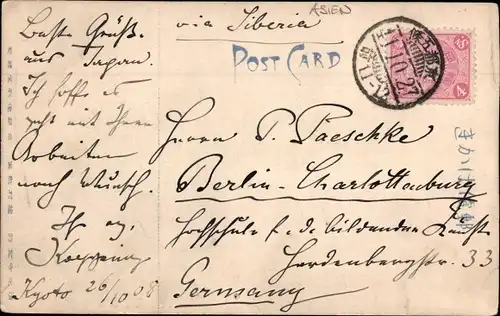 Beste Grüße
aus Japan.
Ich hoffe es
geht mit Ihren
Arbeiten
nach Wunsch.
Ihr erg.
Kyoto 26/10 08
via Siberia
ASIEN
POST CARD
Herrn P. Paeschke
Berlin-Charlottenburg
Hochschule f. d. bildenden Künste
Hardenbergstr. 33
Germany